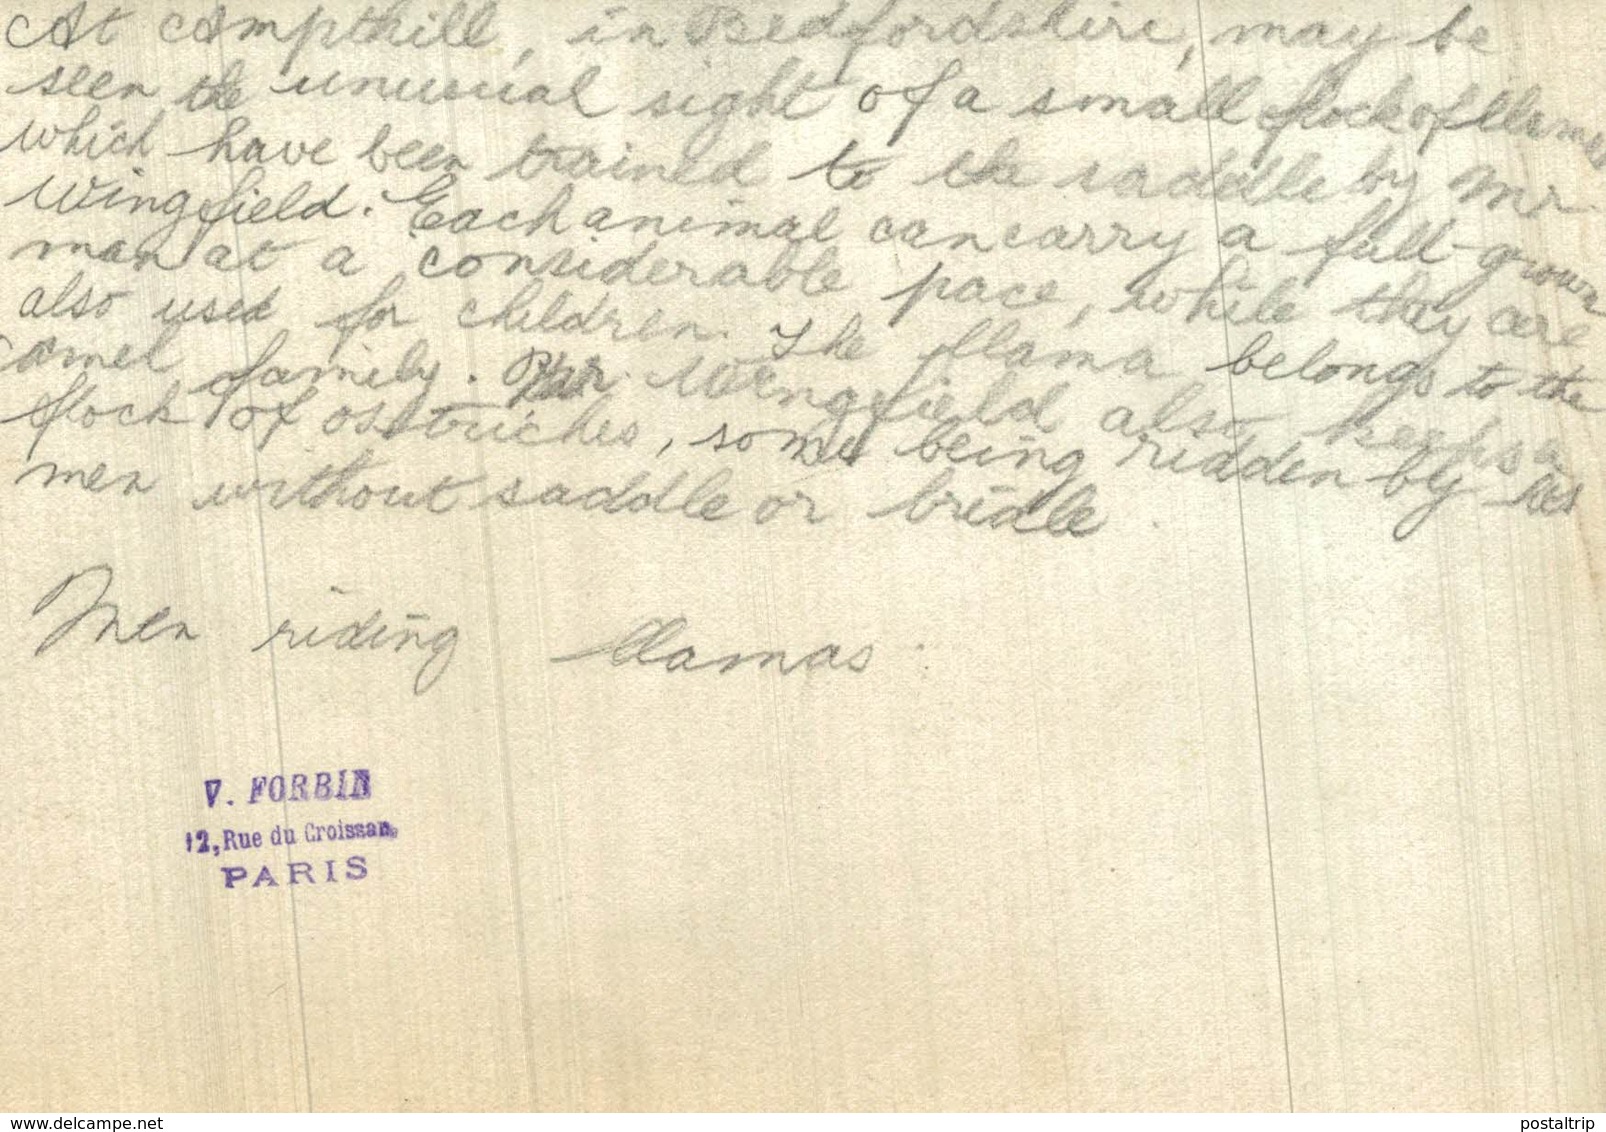 At Ampthill, in Bedfordshire, may be
seen the unusual sight of a small flock of llamas
which have been trained to the saddle by Mr.
Wingfield. Each animal can carry a full-grown
man at a considerable pace, while they are
also used for children. The llama belongs to the
camel family. Mr. Wingfield also keeps a
flock of osstriches, some being ridden by his
men without saddle or bridle.
Men riding llamas.
V. FORBIN
12, Rue du Croissan
PARIS
delcampe.net
postaltrip